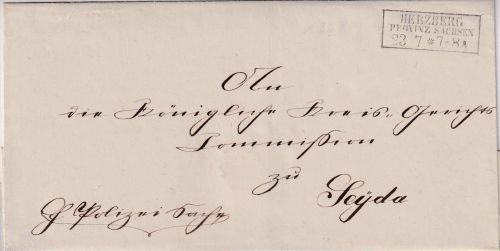 HERZBERG
PROVINZ SACHSEN
23 7 *7-8A
An
die Königliche Kreis-Gerichts
Commission
zu
Seÿda
Polizei Sache